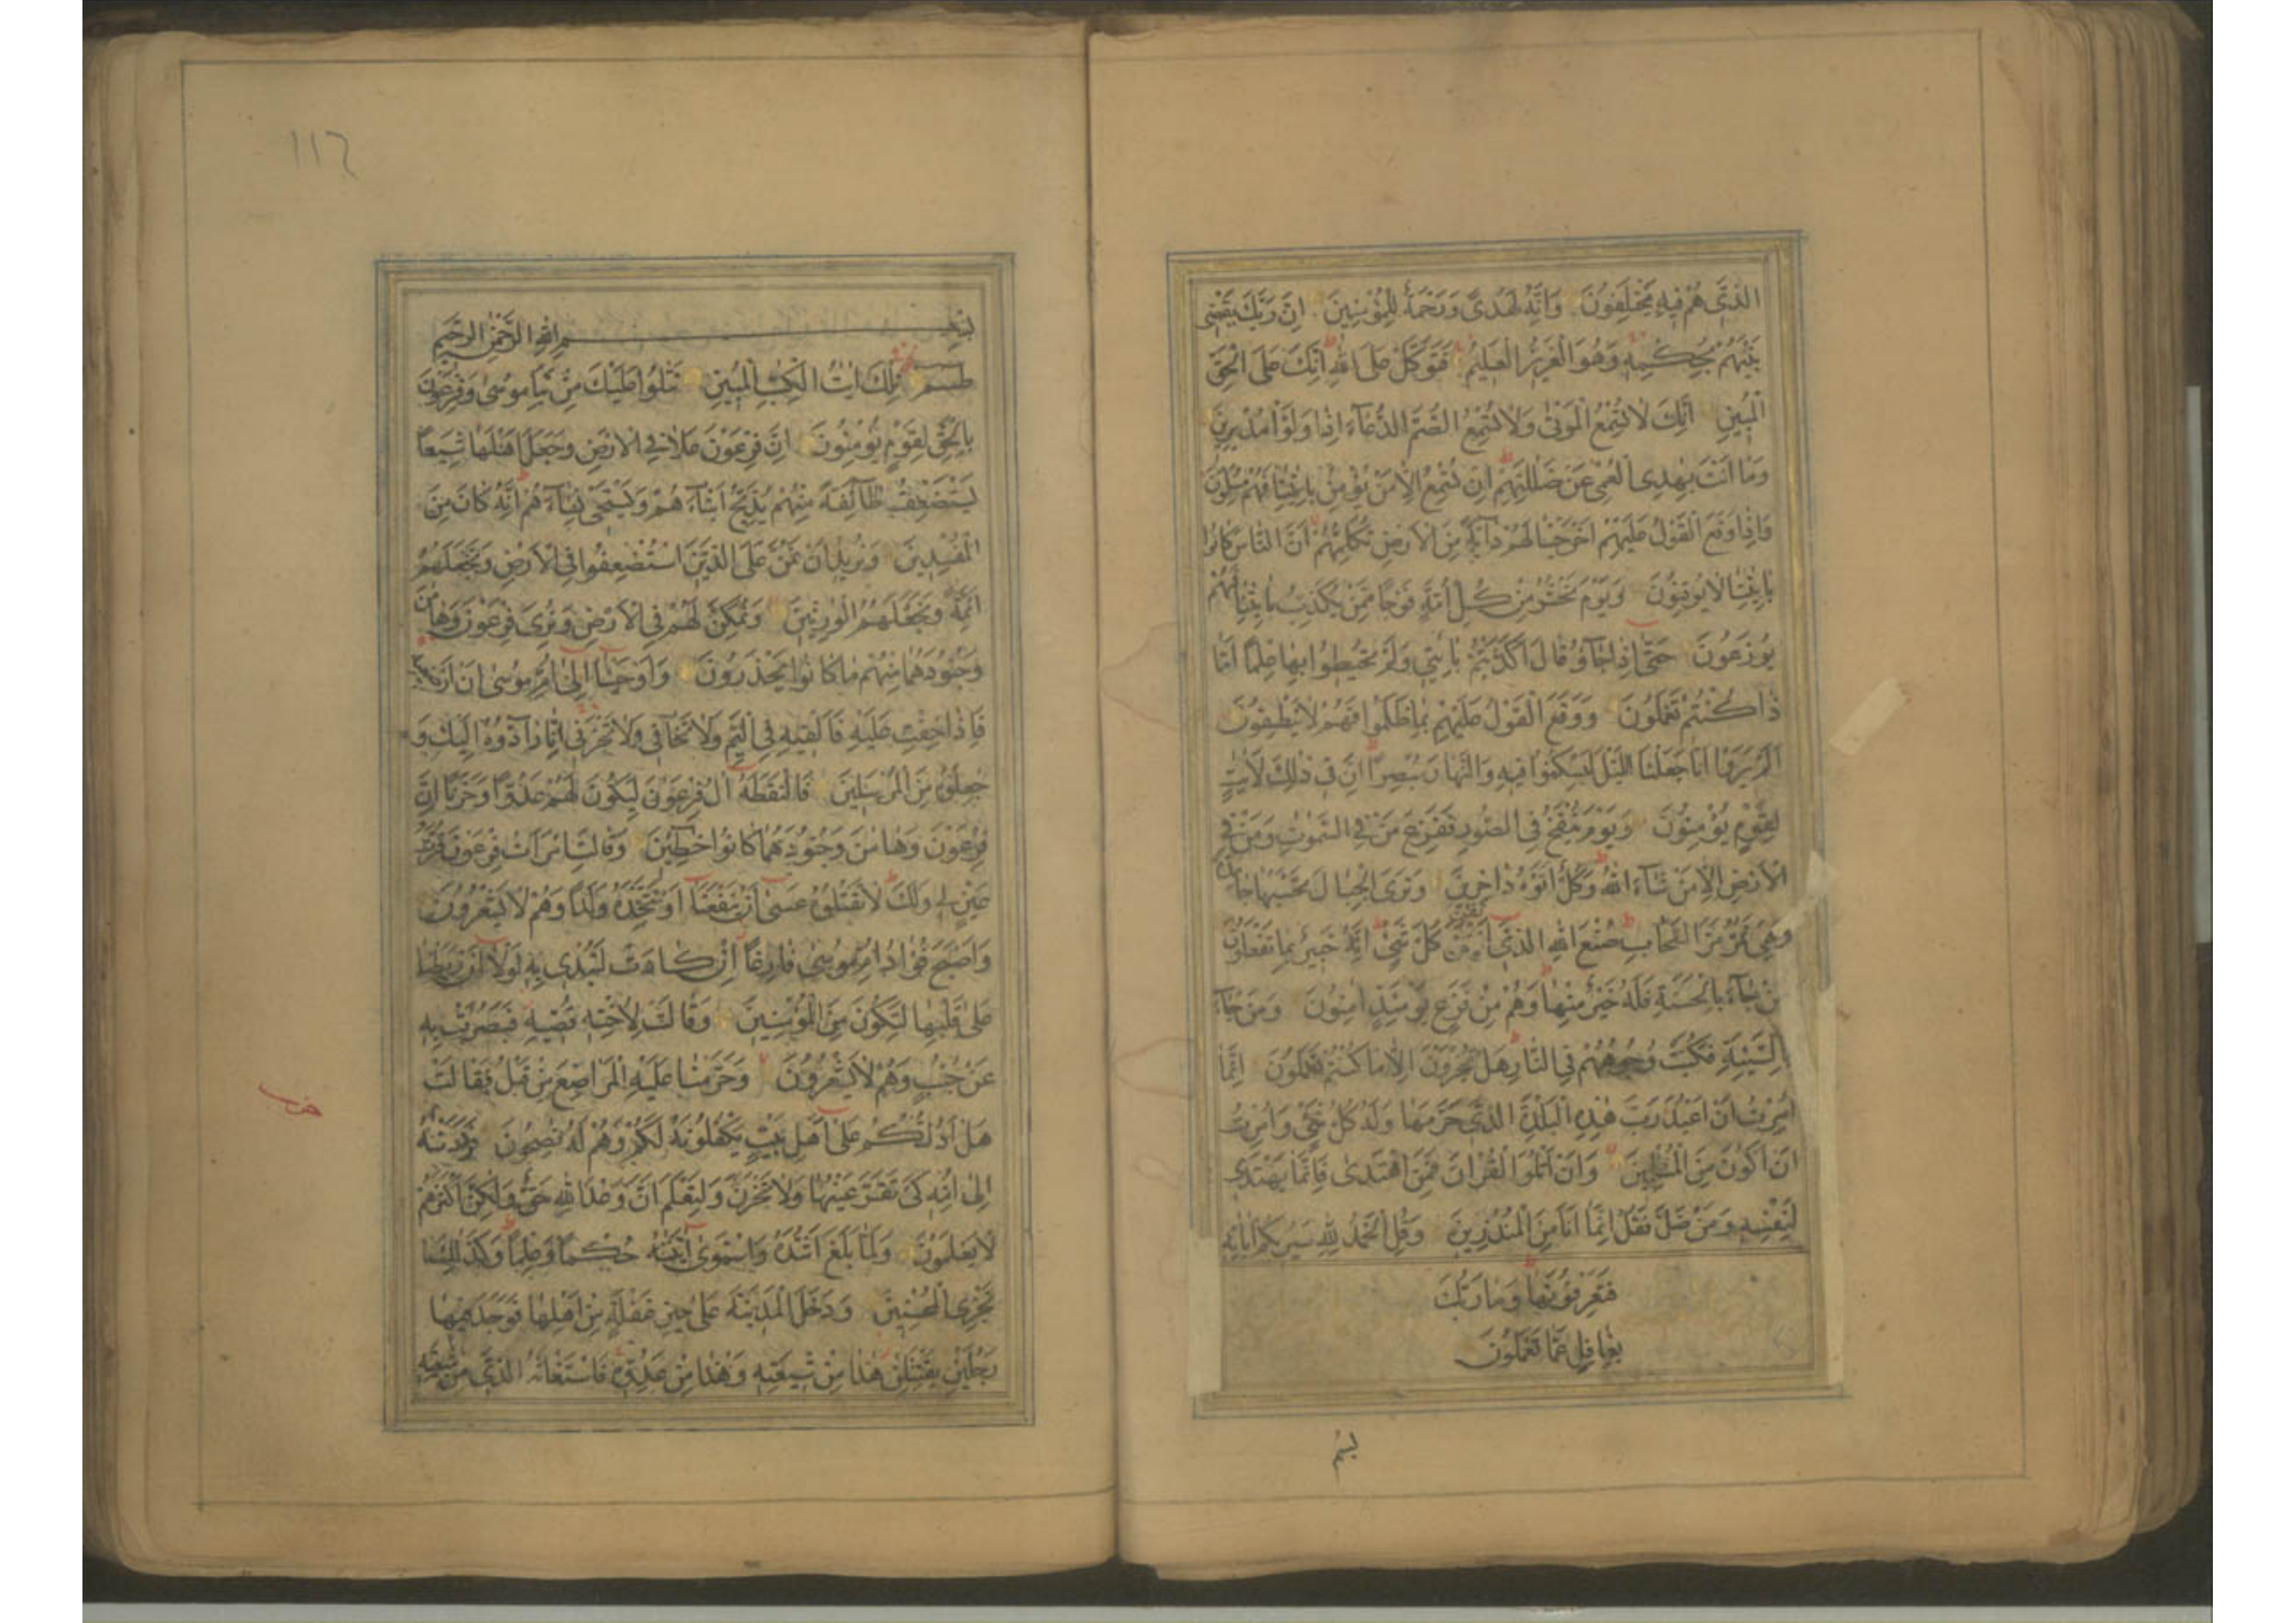 الذى هم فيه يختلفون وانه لهدى ورحمة للمؤمنين ان ربك يقضى
بينهم بحكمه وهو العزيز العليم فتوكل على الله انك على الحق
المبين انك لا تسمع الموتى ولا تسمع الصم الدعاء اذا ولوا مدبرين
وما انت بهدى العمى عن ضللتهم ان تسمع الا من يؤمن بايتنا فهم مسلمون
واذا وقع القول عليهم اخرجنا لهم دابة من الارض تكلمهم ان الناس كانوا
بايتنا لا يوقنون ويوم نحشر من كل امة فوجا ممن يكذب بايتنا فهم
يوزعون حتى اذا جاؤ قال اكذبتم بايتى ولم تحيطوا بها علما اما
ذا كنتم تعملون ووقع القول عليهم بما ظلموا فهم لا ينطقون
الم يروا انا جعلنا الليل ليسكنوا فيه والنهار مبصرا ان فى ذلك لايت
لقوم يؤمنون ويوم ينفخ فى الصور ففزع من فى السموت ومن فى
الارض الا من شاء الله وكل اتوه داخرين وترى الجبال تحسبها جامدة
وهى تمر مر السحاب صنع الله الذى اتقن كل شئ انه خبير بما تفعلون
من جاء بالحسنة فله خير منها وهم من فزع يومئذ امنون ومن جاء
بالسيئة فكبت وجوههم فى النار هل تجزون الا ما كنتم تعملون انما
امرت ان اعبد رب هذه البلدة الذى حرمها وله كل شئ وامرت
ان اكون من المسلمين وان اتلوا القران فمن اهتدى فانما يهتدى
لنفسه ومن ضل فقل انما انا من المنذرين وقل الحمد لله سيريكم اياته
فتعرفونها وما ربك
بغافل عما تعملون
بسم
١١٦
بسم الله الرحمن الرحيم
طسم تلك ايات الكتب المبين نتلوا عليك من نبا موسى وفرعون
بالحق لقوم يؤمنون ان فرعون علا فى الارض وجعل اهلها شيعا
يستضعف طائفة منهم يذبح ابناءهم ويستحى نساءهم انه كان من
المفسدين ونريد ان نمن على الذين استضعفوا فى الارض ونجعلهم
ائمة ونجعلهم الورثين ونمكن لهم فى الارض ونرى فرعون وهامن
وجنودهما منهم ما كانوا يحذرون واوحينا الى ام موسى ان ارضعيه
فاذا خفت عليه فالقيه فى اليم ولا تخافى ولا تحزنى انا رادوه اليك و
جعلوه من المرسلين فالتقطه ال فرعون ليكون لهم عدوا وحزنا ان
فرعون وهامن وجنودهما كانوا خطئين وقالت امرات فرعون قرت
عين لى ولك لا تقتلوه عسى ان ينفعنا او نتخذه ولدا وهم لا يشعرون
واصبح فؤاد ام موسى فارغا ان كادت لتبدى به لولا ان ربطنا
على قلبها لتكون من المؤمنين وقالت لاخته قصيه فبصرت به
عن جنب وهم لا يشعرون وحرمنا عليه المراضع من قبل فقالت
هل ادلكم على اهل بيت يكفلونه لكم وهم له نصحون فرددنه
الى امه كى تقر عينها ولا تحزن ولتعلم ان وعد الله حق ولكن اكثرهم
لا يعلمون ولما بلغ اشده واستوى اتينه حكما وعلما وكذلك
نجزى المحسنين ودخل المدينة على حين غفلة من اهلها فوجد فيها
رجلين يقتتلن هذا من شيعته وهذا من عدوه فاستغاثه الذى من شيعته